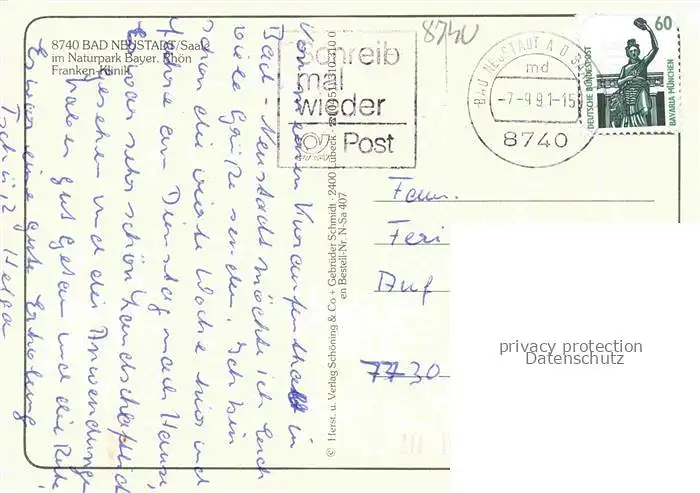 8740 BAD NEUSTADT/Saale
im Naturpark Bayer. Rhön
Franken-Klinik
Schreib
mal
wieder
Post
8740
BAD NEUSTADT A D S
md
-7-9 91-15
8740
60
DEUTSCHE BUNDESPOST
BAVARIA MÜNCHEN
Von meinem Kuraufenthalt in
Bad-Neustadt möchte ich Euch
viele Grüße senden. Ich bin
schon die vierte Woche hier und
fahre am Dienstag nach Hause,
sehr schön landschaftlich
gesehen und die Anwendungen
haben gut getan und die Ruhe,
Es war eine gute Erholung
Tschüß Helga
© Herst. u. Verlag Schöning & Co + Gebrüder Schmidt · 2400 Lübeck
en Bestell-Nr. N-Sa 407
Fam.
Feri
Auf
7730
privacy protection
Datenschutz